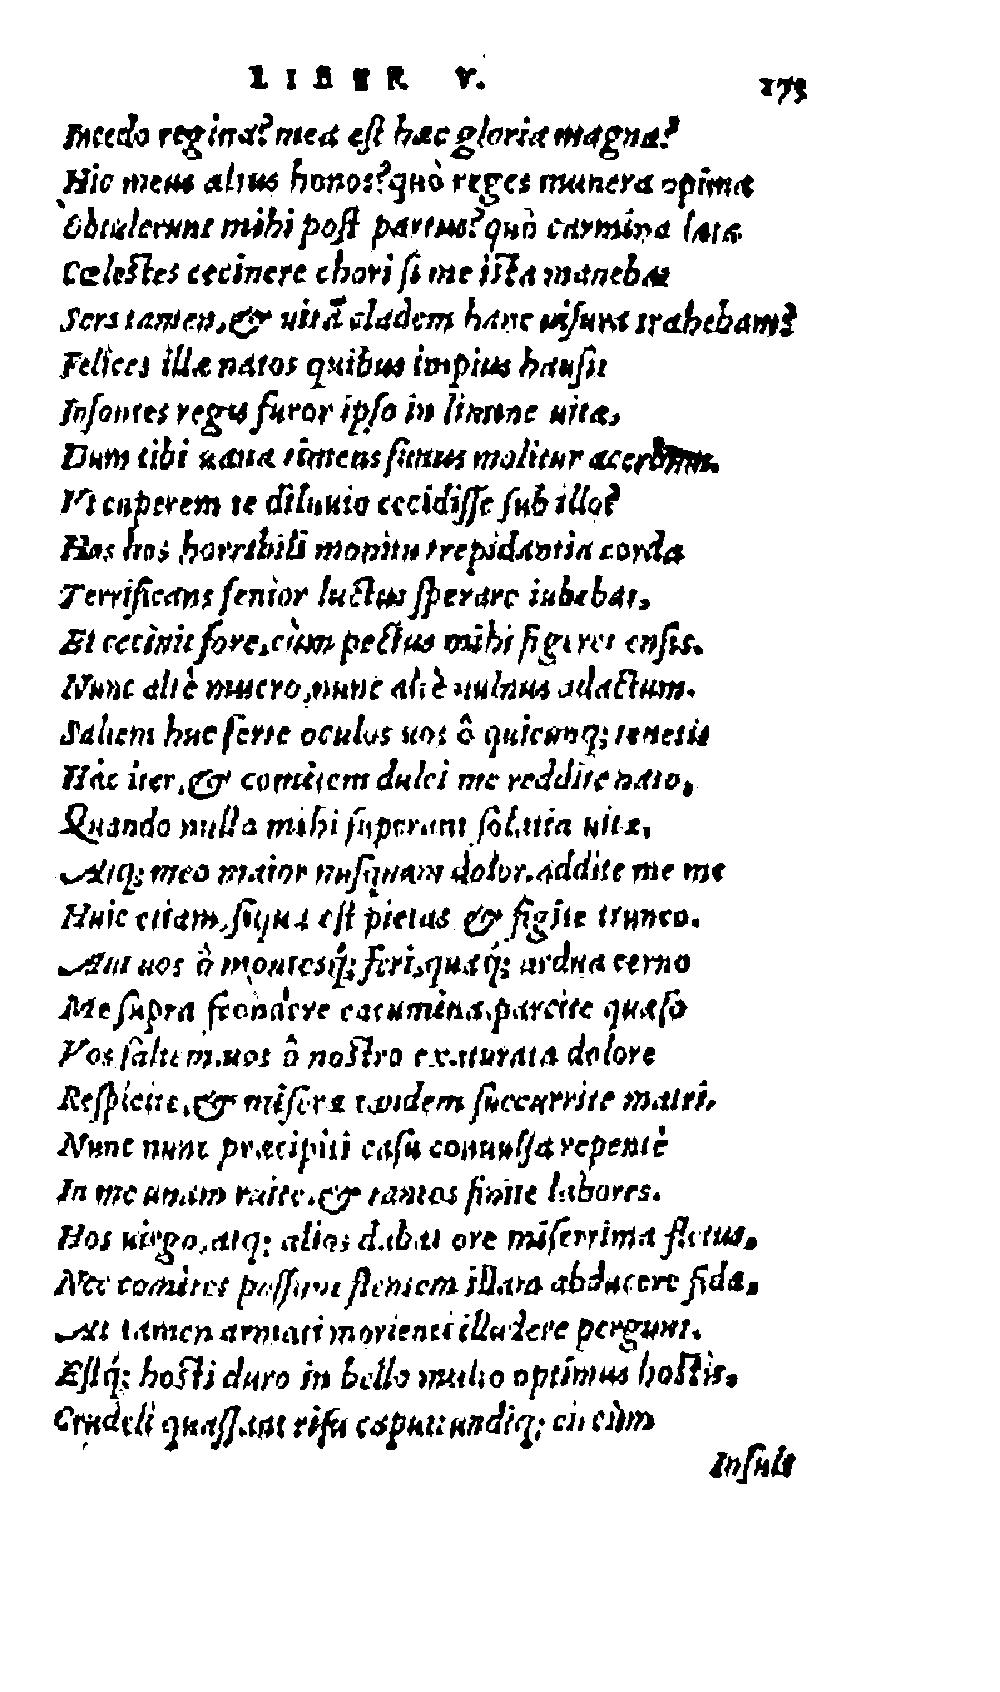 LIBER V. 173
Incedo regina? mea est hæc gloria magna?
Hic meus altus honos? quò reges munera opima
Obtulerunt mihi post partus? quò carmina læta
Cœlestes cecinere chori si me ista manebat
Sors tamen, & uitã cladem hanc uisura trahebam?
Felices illæ natos quibus impius hausit
Insontes regis furor ipso in limine uitæ,
Dum tibi uana timens funus molitur acerbum.
Vt cuperem te diluuio cecidisse sub illo?
Hos hos horribili monitu trepidantia corda
Terrificans senior luctus sperare iubebat,
Et cecinit fore, cùm pectus mihi figeret ensis.
Nunc altè mucro, nunc altè uulnus adactum.
Saltem huc ferte oculos uos ô quicunq; tenetis
Hàc iter, & comitem dulci me reddite nato,
Quando nulla mihi superant solatia uitæ,
Atq; meo maior nusquam dolor. addite me me
Huic etiam, siqua est pietas & figite trunco.
Aut uos ô montesq́; feri, quæq́; ardua cerno
Me supra frondere cacumina, parcite quæso
Vos saltem. uos ô nostro exaturata dolore
Respicite, & miseræ tandem succurrite matri,
Nunc nunc præcipiti casu conuulsa repentè
In me unam ruite. & tantos finite labores.
Hos uirgo, atq; alios dabat ore miserrima fletus,
Nec comites possunt flentem illam abducere fidæ,
At tamen armati morienti illudere pergunt.
Estq́; hosti duro in bello multo optimus hostis.
Crudeli quassant risu caput undiq; cũ cùm
Insult